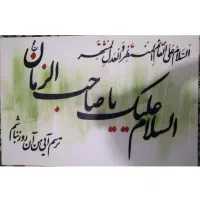 السلام علی القائم المنتظر و العدل المشتهر
السلام علیک یا صاحب الزمان
ترسم آیی من آن روز نباشم